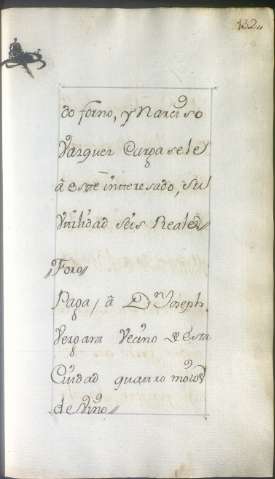 132,,
do forno, y Narciso
Vazquez Carga sele
à este interesado, su
Vtilidad seis Reales
Foro
Paga, à Dn Joseph
Vergara Vecino de esta
Ciudad quatro moios
de Vino